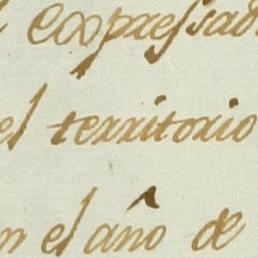 expressad
el territorio
en el año de